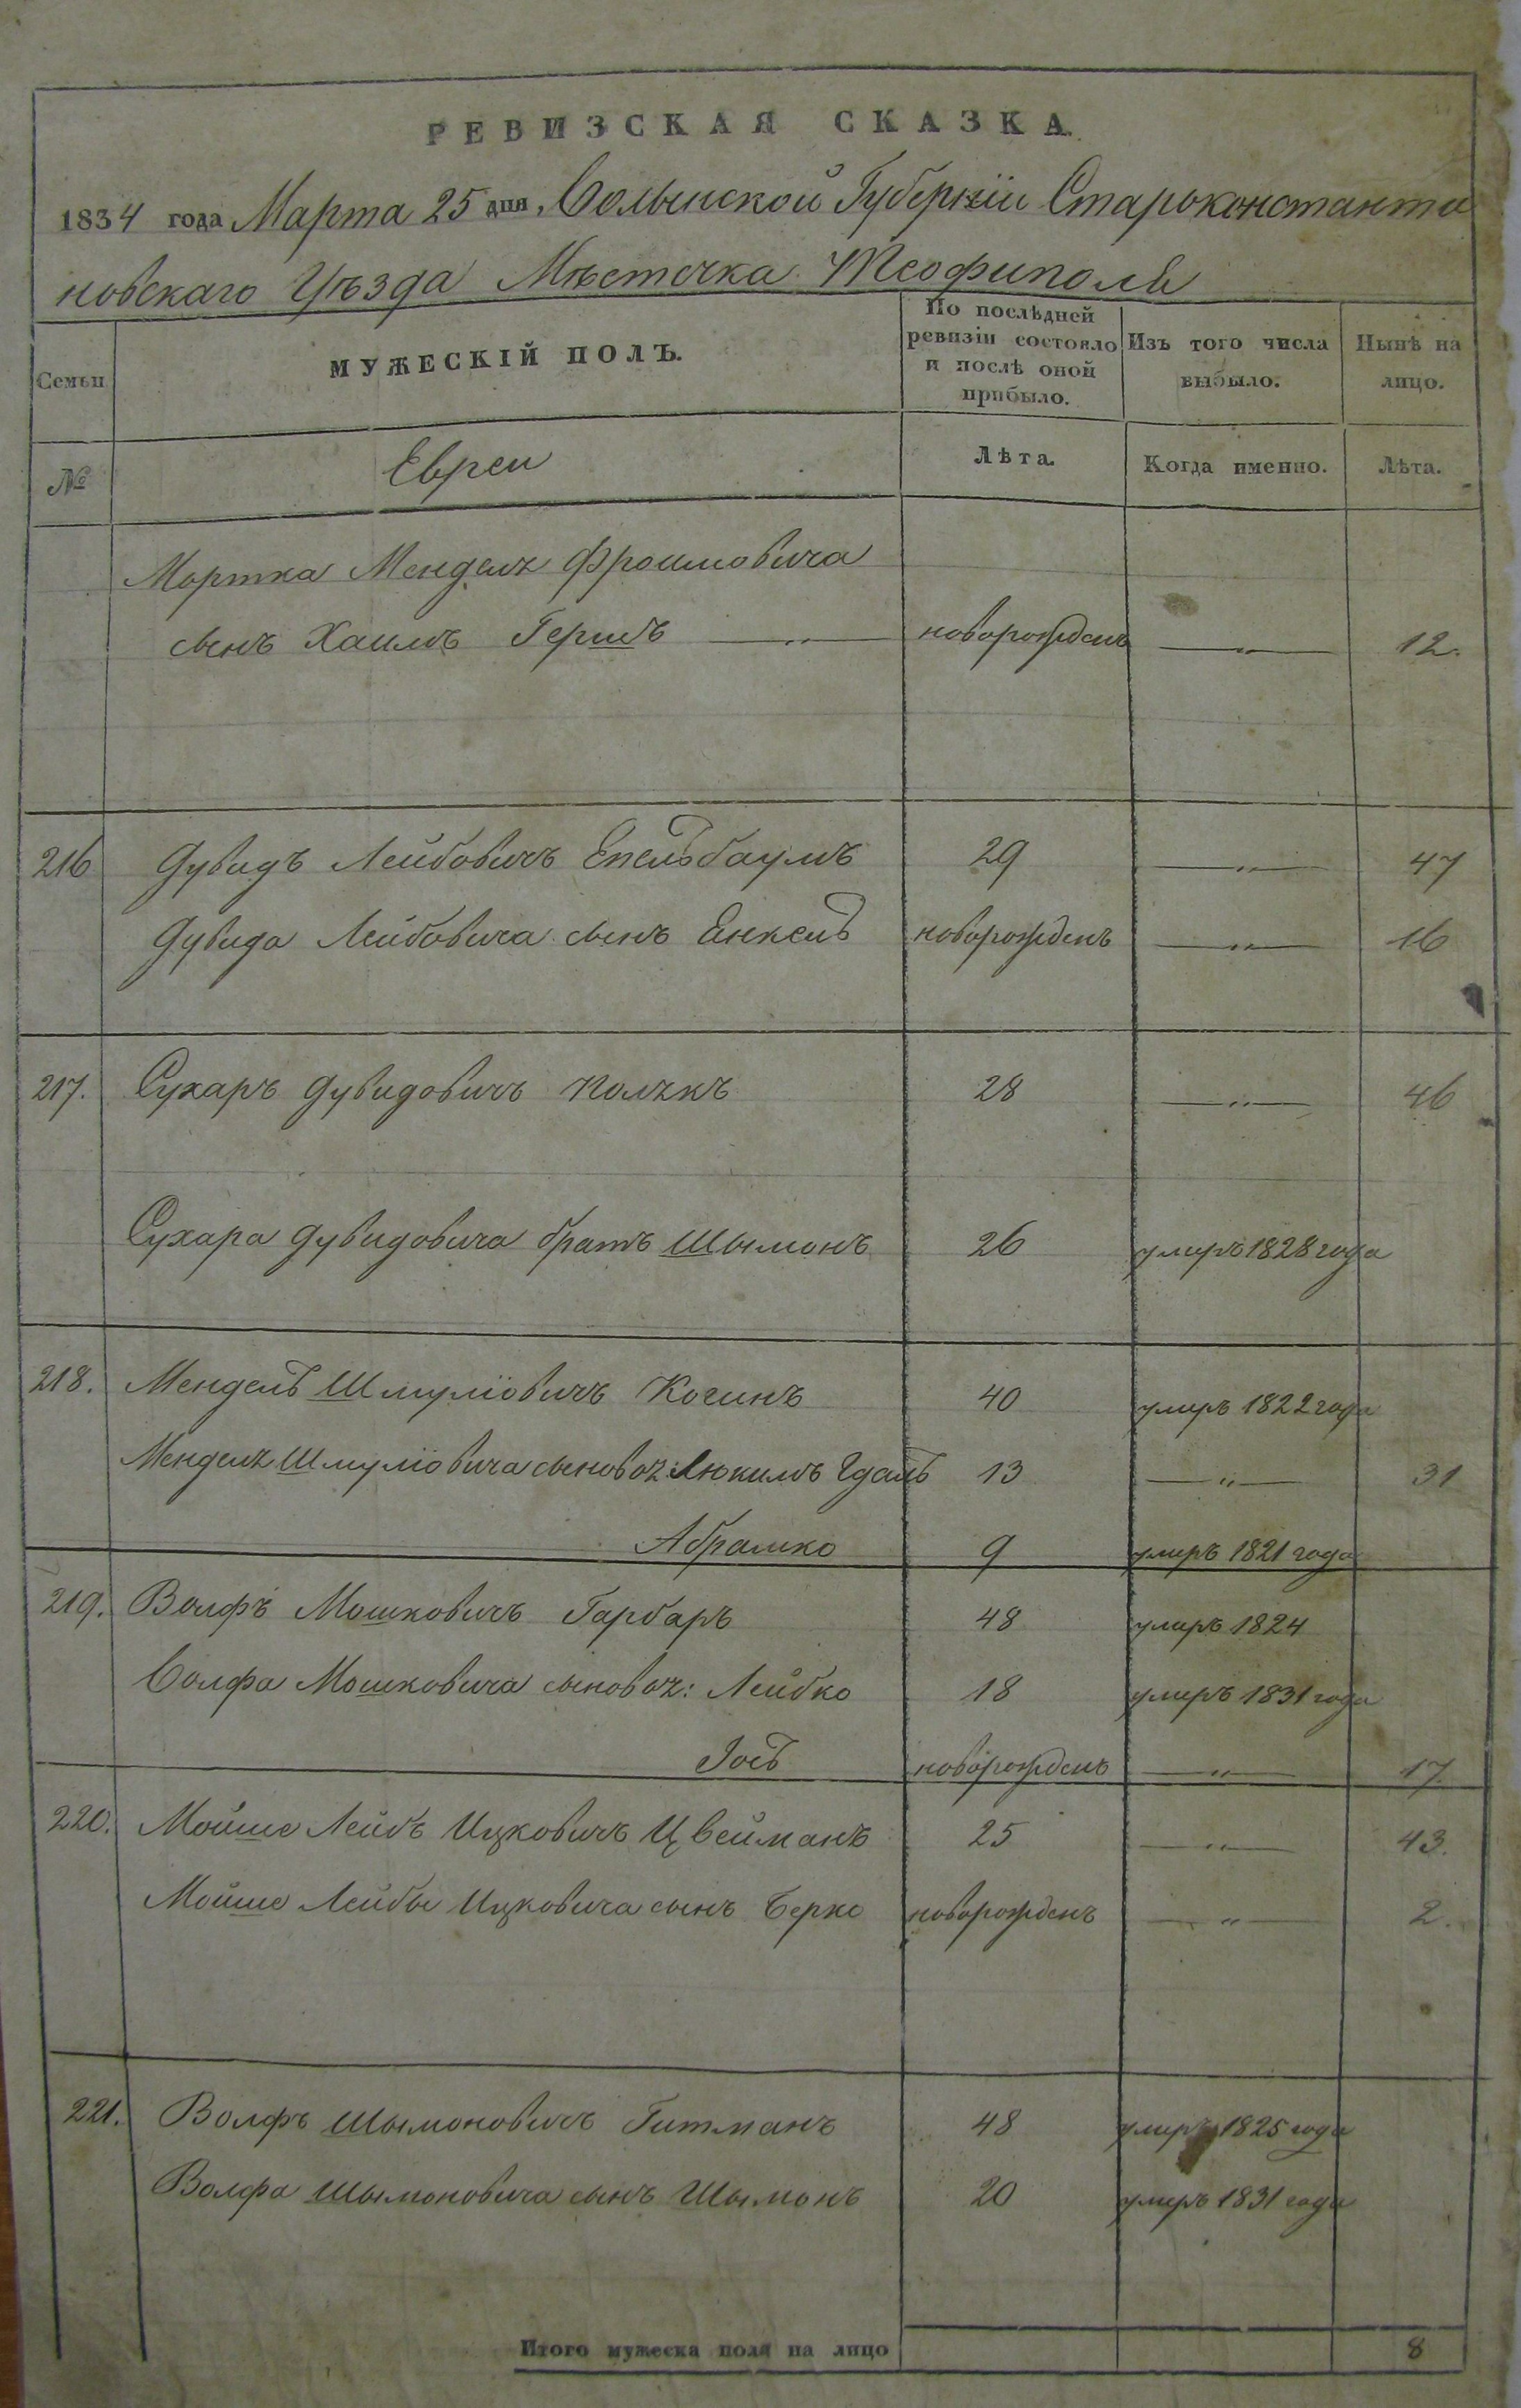 РЕВИЗСКАЯ СКАЗКА.
1834 года Марта 25 дня, Волынской Губерніи Староконстанти
новскаго Уѣзда Мѣстечка Теофиполя
Семьи
МУЖЕСКІЙ ПОЛЪ.
По послѣдней ревизіи состояло и послѣ оной прибыло.
Изъ того числа выбыло.
Нынѣ на лицо.
№ Евреи Лѣта. Когда именно. Лѣта.
Мортка Менделя Фроимовича
сынъ Хаимъ Гершъ —„— новорожденъ —„— 12.
216 Дувидъ Лейбовичъ Епельбаумъ 29 —„— 47
Дувида Лейбовича сынъ Енкель новорожденъ —„— 16
217. Сухаръ Дувидовичъ 28 —„— 46
Сухара Дувидовича братъ Шымонъ 26 умиръ 1828 года
218. Мендель Шмуліовичъ Когинъ 40 умиръ 1822 года
Менделя Шмуліовича сыновья: 13 —„— 31
Абрамко 9 умиръ 1821 года
219. Волфъ Мошковичъ Гарбаръ 48 умиръ 1824
Волфа Мошковича сыновья: Лейбко 18 умиръ 1831 года
Іось новорожденъ —„— 17.
220. Мойше Лейбъ Ицковичъ Цвейманъ 25 —„— 43.
Мойше Лейбы Ицковича сынъ Берко новорожденъ —„— 2.
221. Волфъ Шымоновичъ Гитманъ 48 умиръ 1825 года
Волфа Шымоновича сынъ Шымонъ 20 умиръ 1831 года
Итого мужеска поля на лицо 8